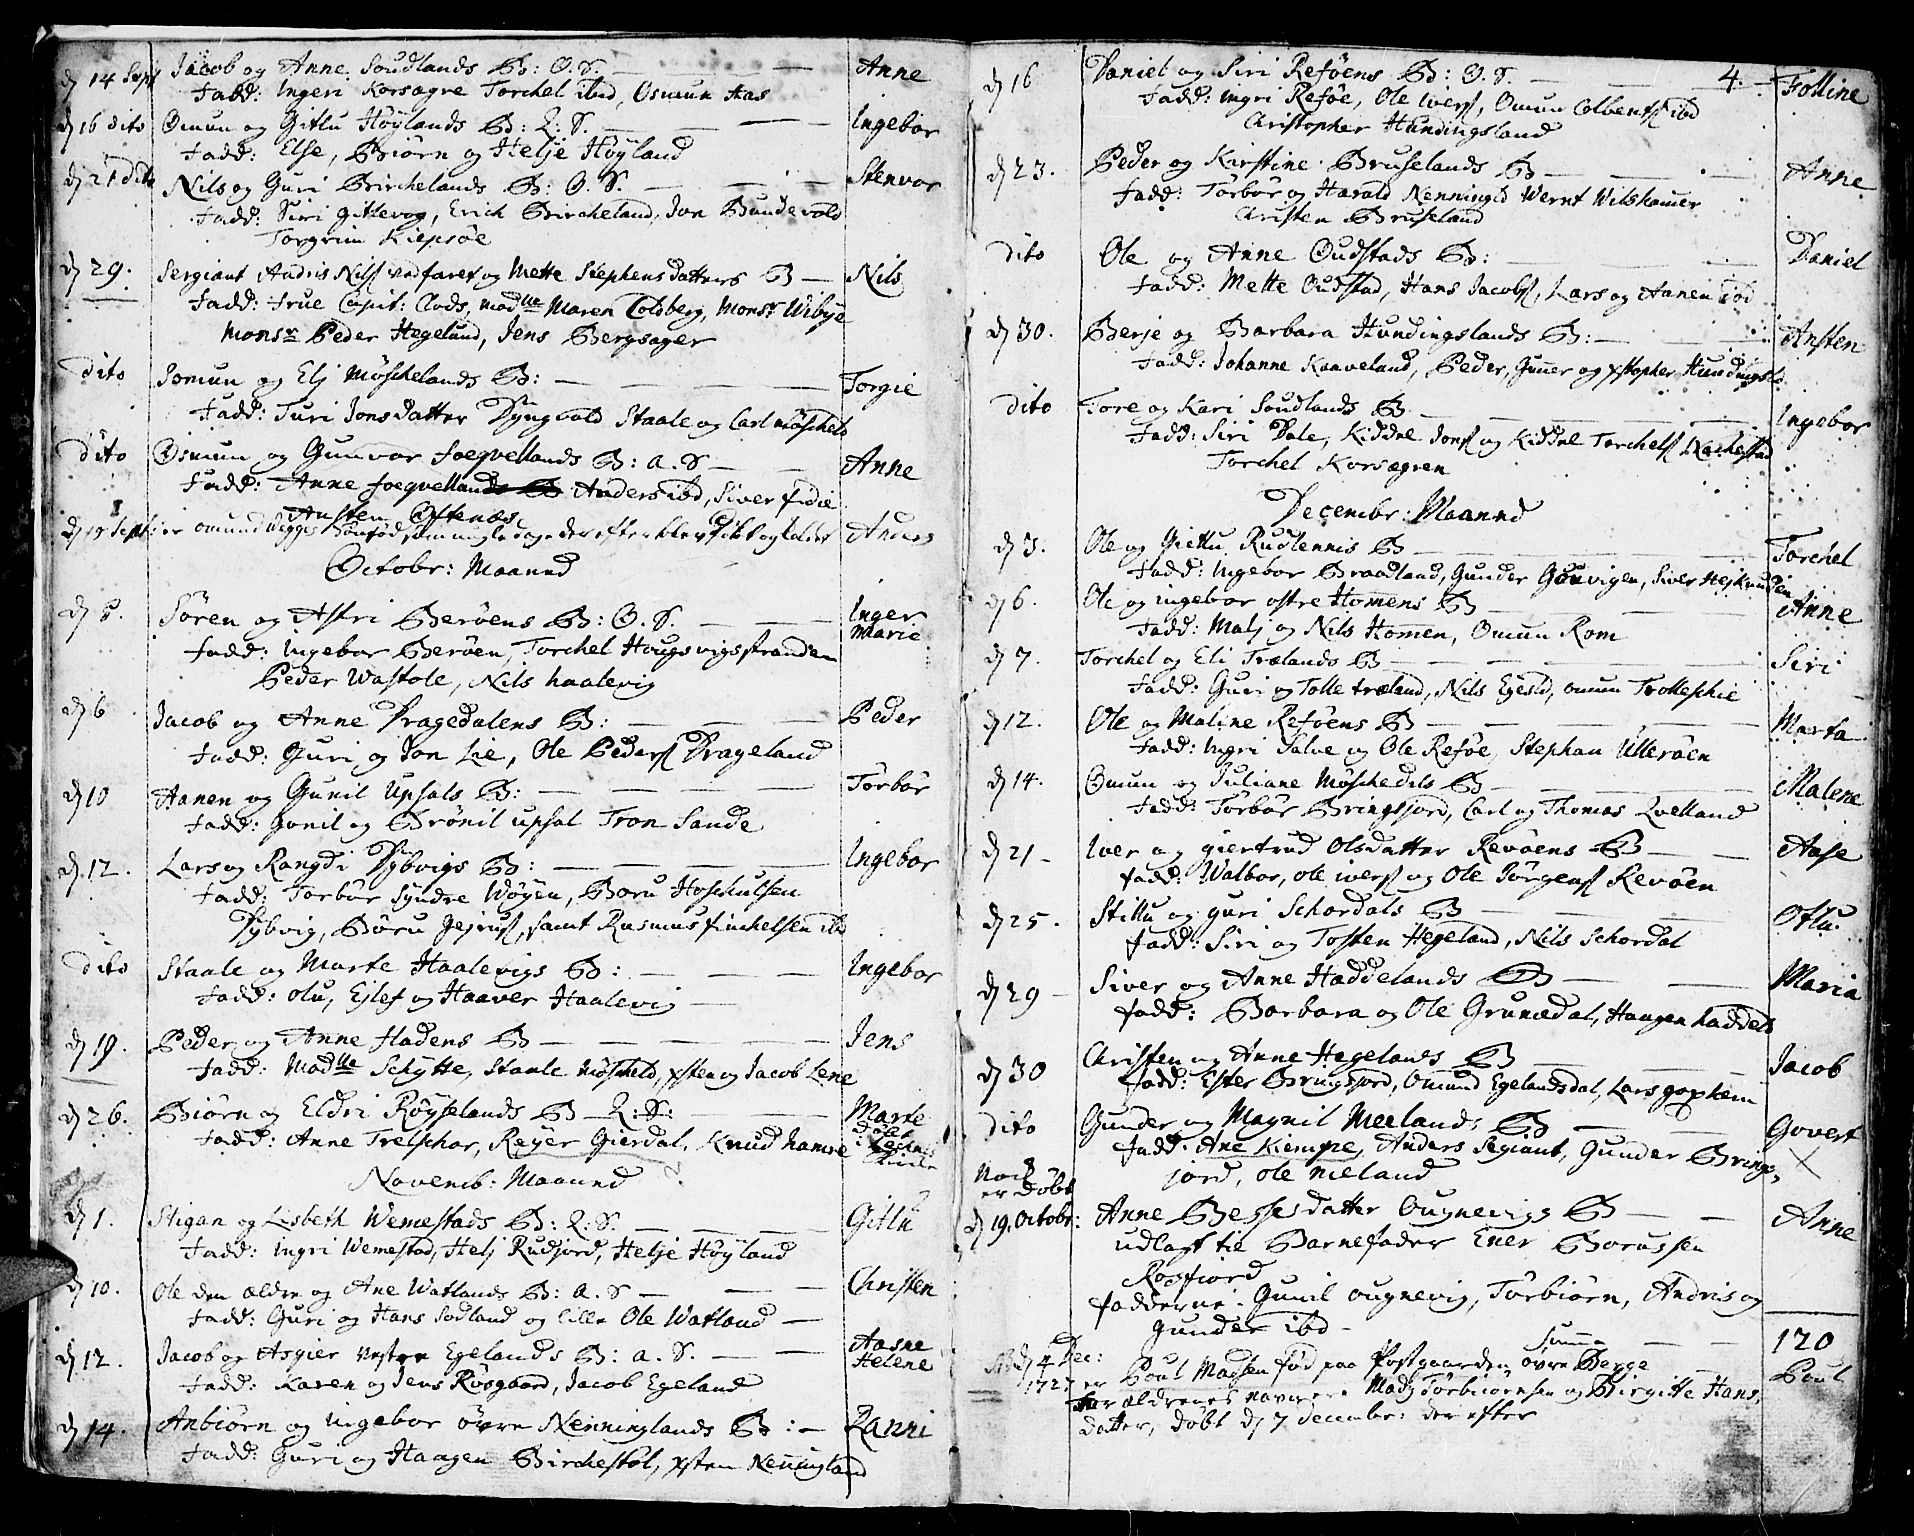 d 14 Sept Jacob og Anne Soudlands B: O. S. — — Anne
Fadd: Ingeri Korsægre Torchel ibid, Osmun Haas
d 16 dito Omun og Gitlu Höylands B: Q: S. — — Ingebor
Fadd: Else, Biörn og Helje Höyland
d 21 dito Nils og Guri Birchelands B: O. S. — — Stenvor
Fadd: Siri Gitlevog, Erich Bircheland, Jon Bundevold
Torgrim Kiepsöe
d 29. Sergiant Andris Nilsf og Mette Stephens datters B — Nils
Fadd: Frue Capit: Clods, Madlle Maren Coldberg, Monsr Wibye
Monsr Peder Hegelund, Jens Bergsager
dito Somun og Elj Möschelands B: — — — Torgie
Fadd: Turi Jonsdatter Dyngvold Staale og Carl Möscheld
dito Osmun og Gunvor foeqvellands B: a. S — — Anne
Fadd: Anne foeqvellands B Anders ibd, Siver fidie
Ansten Oftenæs
d 19 Sept: er omund Wigges Sön föd, som nogle dage der efter blev döbt og kaldet Anders
Octobr: Maaned
d 5. Sören og Astri Beröens B: O. S. — — Inger Marie
Fadd: Ingebor Beröen, Torchel Hougsvigstranden
Peder Wastole, Nils haalevig
d 6 Jacob og Anne Dragedalens B: — — — Peder
Fadd: Guri og Jon Lie, Ole Pedersf Drageland
d 10 Aanen og Gunil Upsals B: — — — Törbör
Fadd: Gonil og Brönil upsal Tron Sande
d. 12. Lars og Rangdi Dybvigs B: — — — Ingebor
Fadd: Torbör Syndre Wöyen, Boru Hoskulsen
Dybvig, Böru Gejrusf, samt Rasmus finchelsen ibd
dito Staale og Marte Haalevigs B: — — — Ingebor
Fadd: olu, Ejlef og Haaver Haalevig
d 19. Peder og Anne Hadens B — — — — Jens
Fadd: Madlle Schytte, Staale Möscheld, xsten og Jacob Lene
d 26. Biörn og Eldri Röyselands B — Q: S: — Marte Döbt i Lechnis Kircke
Fadd: Anne Trelsphar, Reyer Gierdal, Knud hamre
Novemb: Maaned
d 1. Stigan og Lisbeth Wemestads B: Q: S. — — Gitlu
Fadd: Ingri Wemestad, Helj Rudjord, Helje Höyland
d 10. Ole den ældre og Ane Watlands B: a. S — — Christen
Fadd: Guri og Hans Sodland og lille Ole Watland —
d 12. Jacob og Asgier vestre Egelands B: a. S. — — Aasne Helene
Fadd: Karen og Jens Rösgaard, Jacob Egeland
d 14. Anbiörn og ingebor övre Nenninglands B: — Ranni
Fadd: Guri og Haagen Birchestöl, xsten Nenningland
4.
d 16 Daniel og Siri Reföens B: O. S. — Folline
Fadd: Ingri Reföe, Ole Iversf, Omun Colbensf ibd
Christopher Hundingsland
d 23. Peder og Kirstine Bruselands B — — — Anne
Fadd: Törbör og Harald Nenningld Wernt Wilshamer
Christen Bruseland
dito Ole og Anne Oudstads B: — — Daniel
Fadd: Mette Oudstad, Hans Jacobsf, Lars og Aanen ibd
d 30. Berje og Barbara Hundingslands B: — — Ansten
Fadd: Johanne Kaaveland, Peder, Gunner og xstopher Hundingsld
dito Tore og Kari Soudlands B. — — — Ingebor
Fadd: Siri Dale, Kiddel Jonsf og Kiddel Torchelsf Rachestad
Torchel Korsægren
Decembr: Maaned
d 3. Ole og Gietlu Rudlennis B — — — Torchel
Fadd: Ingebor Braadland, Gunder Gouvigen, Siver Hejknuden
d 6. Ole og ingebor ostre Homens B — — Anne
Fadd: Malj og Nils Homen, Omun Rom
d 7. Torchel og Eli Trælands B — — — Siri
Fadd: Guri og Tolle træland, Nils Egesld, omun Trollephie
d 12. Ole og Maline Reföens B — — — Marta
Fadd: Ingri Salve og Ole Reföe, Stephan Ulleröen
d 14. Omun og Juliane Möschedils B — — Malene
Fadd: Törbör Bringsjord, Carl og Thomas Qvelland
d 21 — Iver og giertrud Olsdatter Revöens B — — Aase
fadd: Walbor, ole iversf og Ole Jörgensf Revöen
d 25. Stillu og guri Schordals B — — — Ollu
Fadd: Siri og Tosten Hegeland, Nils Schordal
d 29 — Siver og Anne Haddelands B — — Maria
fadd: Barbara og Ole Grunædal, Haagen haddels
d 30 Christen og Anne Hegelands B — — Jacob
Fadd: Ester Bringsjord, Omund Egelandsdal, Lars gopkem
dito Gunder og Magnil Meelands B — — Govert
Fadd: Ane Kiempe, Anders Segiant, Gunder Brings
jord, ole nieland
Noch er Döbt
d 19. Octobr: Anne Bessesdatter Ougnevigs B — — Anne
udlagt til Barnefader Ener Borussen
Rosfiord
fadderne: Gunil ougnevig, Törbiörn, Andris og
Gunder ibd —
Summa — — 120
d 4 Dec: 1727 er Poul Madsen föd paa Postgaarden övre Berge Poul
Forældrenes navne er Mads Törbiörnsen og Birgitte Hans
datter, döbt d 7 decembr: der efter